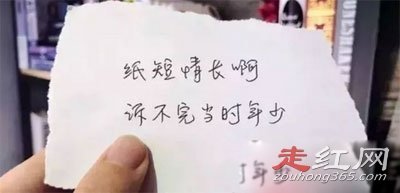 纸短情长啊
诉不完当时年少
走红网
zouhong365.com